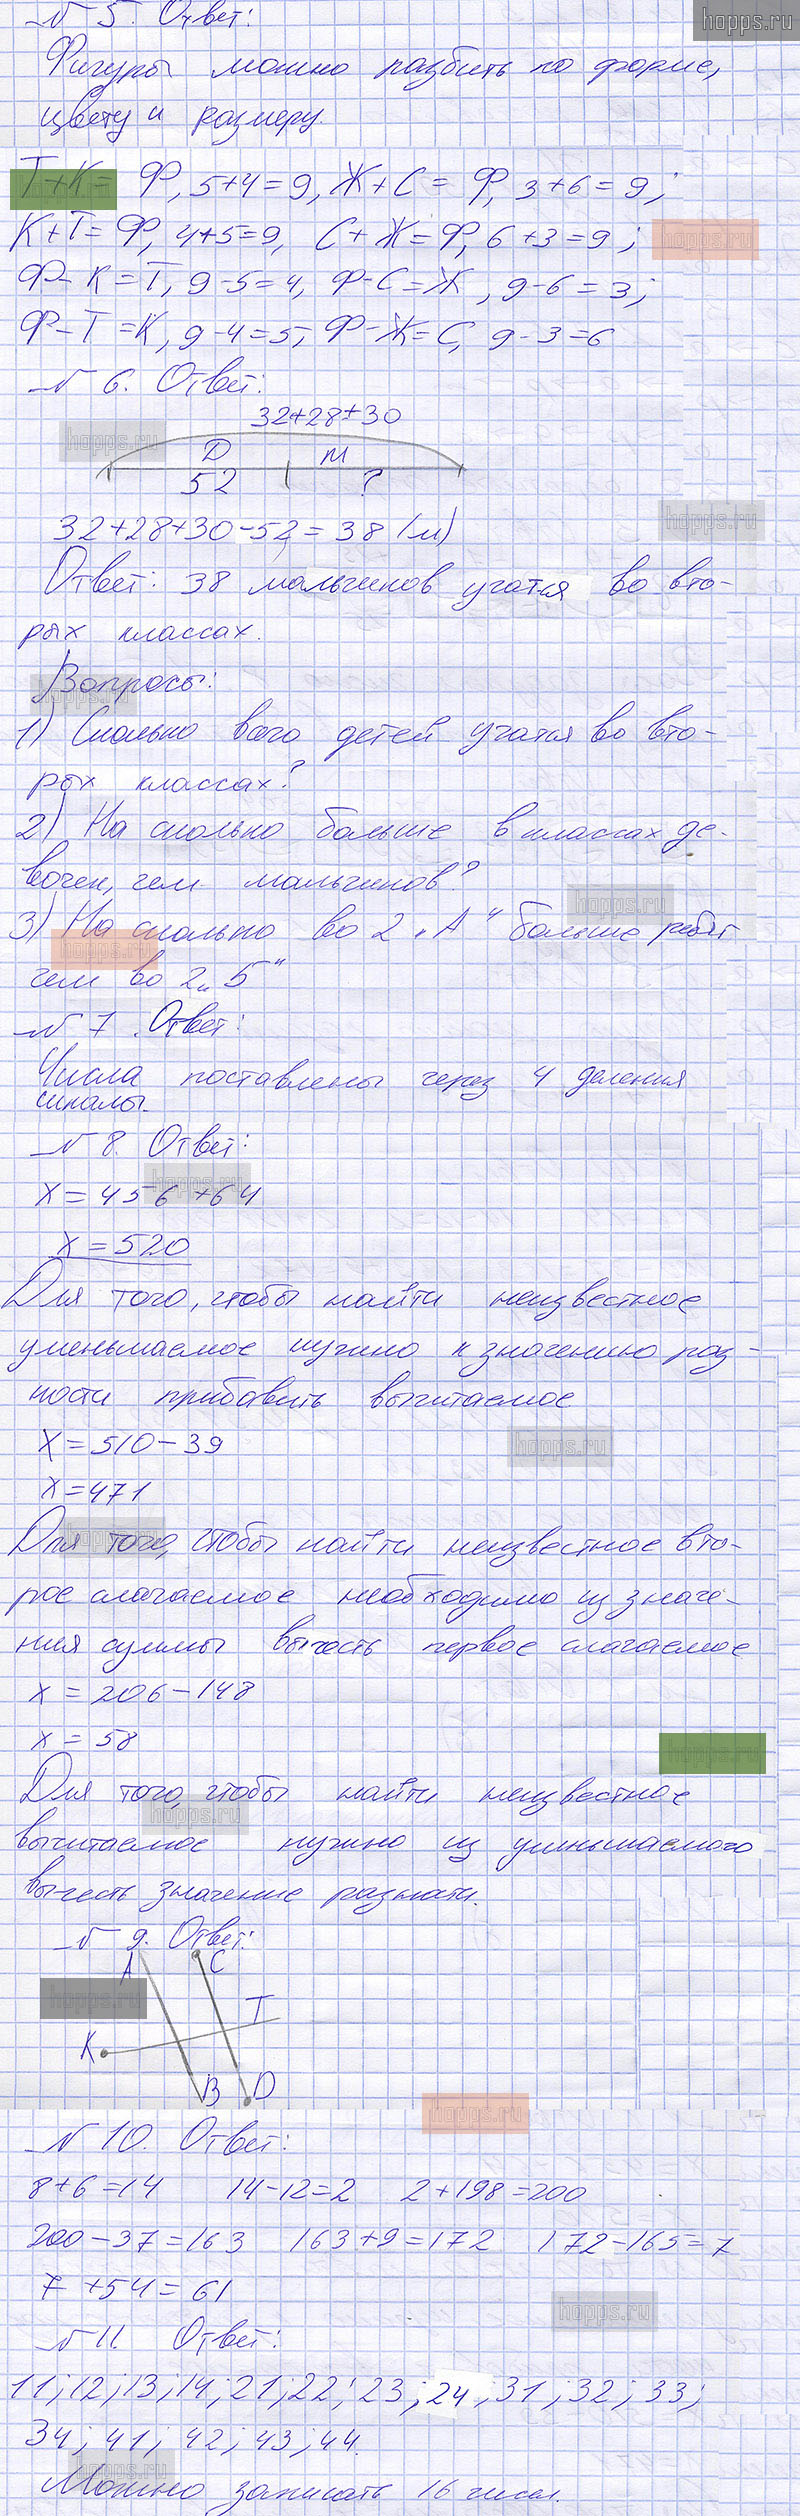 hopps.ru
№ 5. Ответ:
Фигуры можно разбить по форме,
цвету и размеру.
Т+К= Ф, 5+4=9, Ж+С= Ф, 3+6=9;
К+Т=Ф, 4+5=9, С+Ж=Ф, 6+3=9;
hopps.ru
Ф-К=Т, 9-5=4, Ф-С=Ж, 9-6=3;
Ф-Т=К, 9-4=5, Ф-Ж=С, 9-3=6
№ 6. Ответ:
32+28+30
hopps.ru
Д М
52 ?
hopps.ru
32+28+30-52=38 (м)
Ответ: 38 мальчиков учатся во вто-
рых классах.
hopps.ru
Вопросы:
1) Сколько всего детей учатся во вто-
рых классах?
2) На сколько больше в классах де-
вочек, чем мальчиков?
hopps.ru
3) На сколько во 2 „А" больше ребят
hopps.ru
чем во 2„Б"
№ 7. Ответ:
Числа поставлены через 4 деления
шкалы.
№ 8. Ответ:
hopps.ru
х=456+64
х=520
Для того, чтобы найти неизвестное
уменьшаемое нужно к значению раз-
ности прибавить вычитаемое
х=510-39
hopps.ru
х=471
hopps.ru
Для того, чтобы найти неизвестное вто-
рое слагаемое необходимо из значе-
ния суммы вычесть первое слагаемое
х=206-148
х=58
hopps.ru
Для того, чтобы найти неизвестное
hopps.ru
вычитаемое нужно из уменьшаемого
вычесть значение разности.
№ 9. Ответ:
А С
hopps.ru
Т
К
В D
hopps.ru
№ 10. Ответ:
8+6=14 14-12=2 2+198=200
200-37=163 163+9=172 172-165=7
7+54=61
hopps.ru
№ 11. Ответ:
11; 12; 13; 14; 21; 22; 23; 24; 31; 32; 33;
34; 41; 42; 43; 44.
hopps.ru
Можно записать 16 чисел.